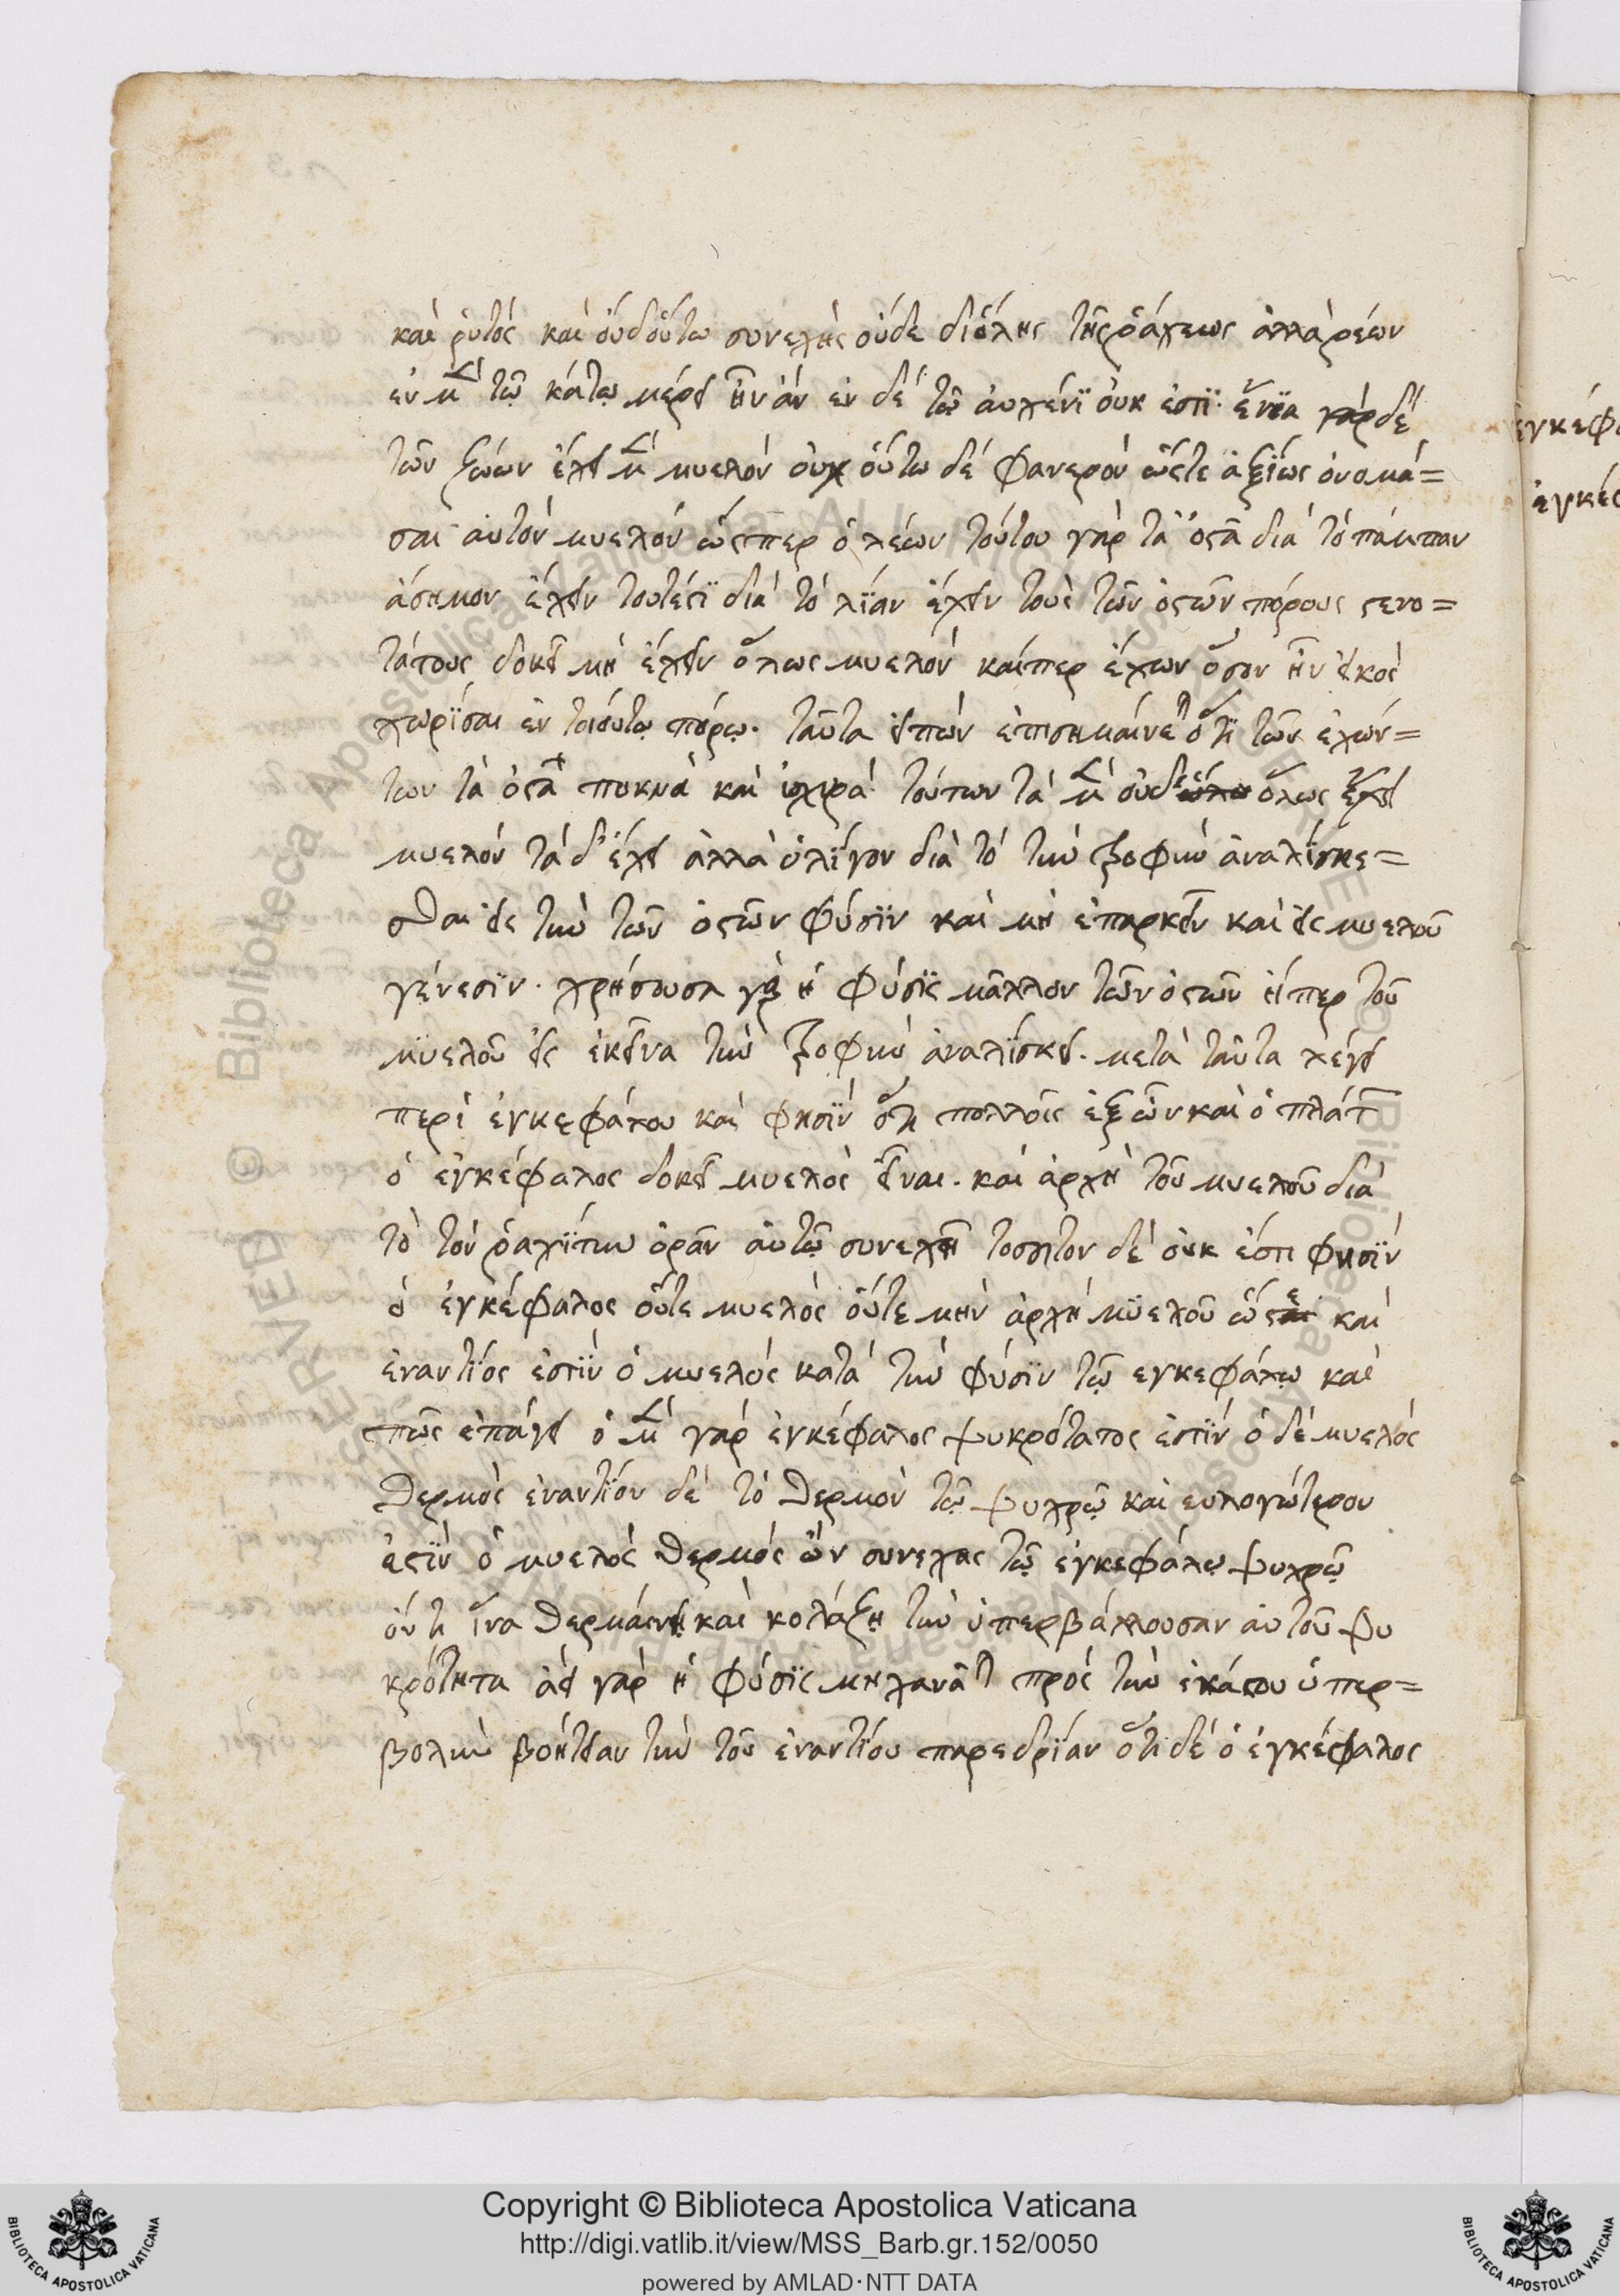 καὶ ῥυτός καὶ οὐδ οὕτω συνεχὴς οὐδὲ διόλης τῆς ῥάχεως ἀλλὰ ῥέων
ἐν μὲν τῷ κάτω μέρει ἦν ἄν ἐν δέ τῷ αὐχένϊ οὐκ ἐστῐ· ἔνϊα γάρ δέ
τῶν ζώων ἔχει μὲν μυελόν οὐχ οὕτω δέ φανερόν ὥστε ἀξίως ὀνομά=
σαι αὐτόν μυελόν ὥσπερ ὁ λέων τούτου γάρ τὰ ὀστᾶ διά τό πάμπαν
ἄσημον ἔχειν τουτέστϊ διά τό λίαν ἔχειν τούς τῶν ὀστῶν πόρους στενο=
τάτους δοκεῖ μή ἔχειν ὅλως μυελόν καίπερ ἔχων ὅσον ἦν εἰκός
χωρῖσαι ἐν τοιούτῳ πόρῳ. ταῦτα εἰπών ἐπισημαίνεται ὅτι τῶν ἐχόν=
των τὰ ὀστᾶ πυκνά καὶ ἰσχυρά τούτων τά μὲν οὐδ ὅλως ἔχει
μυελόν τά δ' ἔχει ἀλλά ὀλίγον διά τό τὴν τροφὴν ἀναλίσκε=
σθαι εἰς τὴν τῶν ὀστῶν φύσϊν καὶ μή ἐπαρκεῖν καὶ εἰς μυελοῦ
γένεσϊν. χρήσουσα γὰρ ἡ φύσϊς μᾶλλον τῶν ὀστῶν ἤπερ τοῦ
μϋελοῦ εἰς ἐκεῖνα τὴν τροφὴν ἀναλίσκει. μετά ταῦτα λέγει
περὶ ἐγκεφάλου καὶ φησίν ὅτι πολλοῖς ἐξ ὧν καὶ ὁ πλάτ
ὁ ἐγκέφαλος δοκεῖ μυελός εἶναι. καὶ ἀρχή τοῦ μυελοῦ διά
τό τόν ῥαχϊτην ὁρᾶν αὐτῷ συνεχῆ τοσοῦτον δέ οὐκ ἔστι φησίν
ὁ ἐγκέφαλος οὔτε μυελός οὔτε μήν ἀρχή μϋελοῦ ὥστε καὶ
ἐναντϊος ἐστϊν ὁ μυελός κατά τὴν φύσϊν τῷ εγκεφάλῳ καὶ
πῶς ἐπάγει ὁ μὲν γάρ ἐγκέφαλος ψυκρότατος ἐστϊν ὁ δέ μυελός
θερμός ἐναντϊόν δέ τό θερμόν τῷ ψυχρῷ καὶ ευλογώτερον
ἐστϊν ὁ μυελός θερμός ὤν συνεχης τῷ ἐγκεφάλῳ ψυχρῷ
όντι ἵνα θερμάινῃ καὶ κολάζῃ τὴν ὑπερβάλλουσαν αὐτοῦ ψυ
κρότητα ἀεί γάρ ἡ φύσϊς μηχανᾶται πρός τὴν ἑκάστου ὑπερ=
βολὴν βοήθειαν τὴν τοῦ ἐναντϊου παρεδρίαν ὅτι δέ ὁ ἐγκέφαλος
Copyright © Biblioteca Apostolica Vaticana
http://digi.vatlib.it/view/MSS_Barb.gr.152/0050
powered by AMLAD·NTT DATA